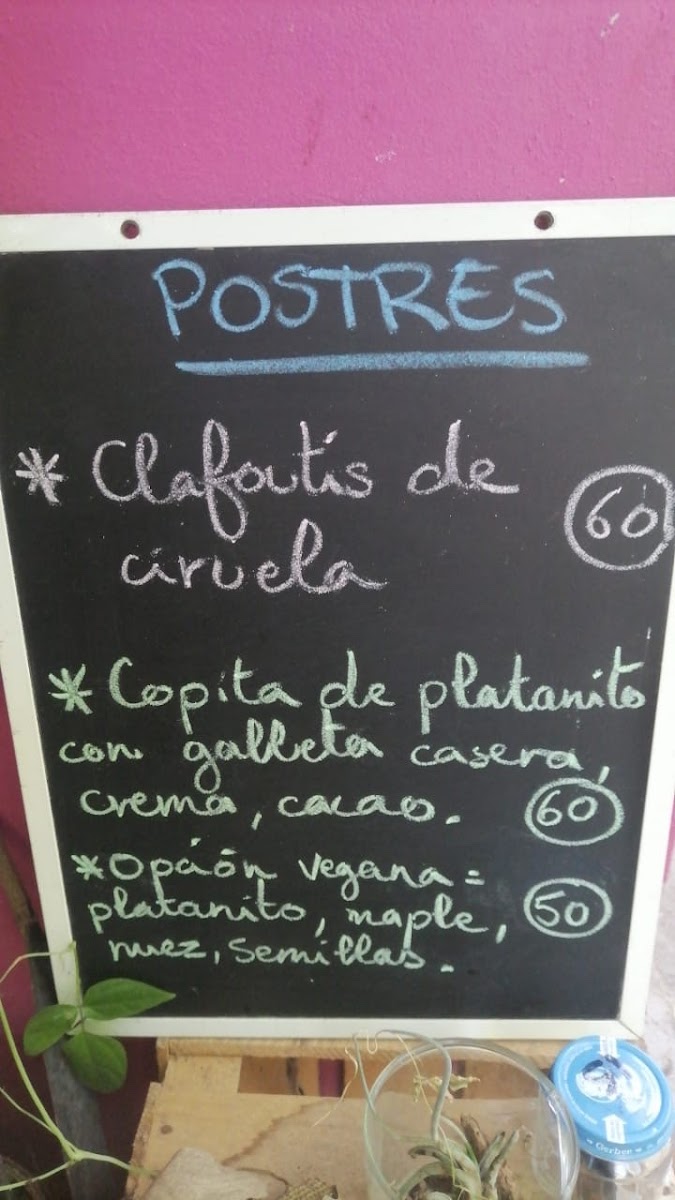 POSTRES
* Clafoutis de
ciruela 60
* Copita de platanito
con galleta casera,
crema, cacao. 60
* Opción vegana =
platanito, maple, 50
nuez, semillas.
Gerber